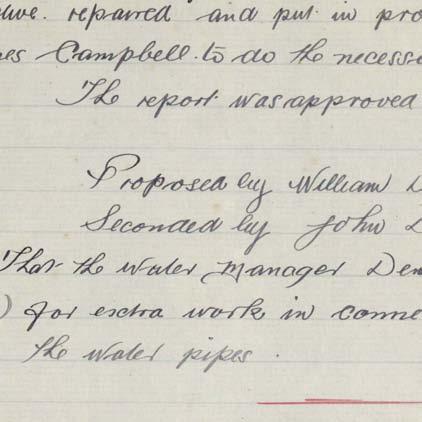 repaired and put in pro
es Campbell to do the necess
The report was approved
Proposed by William D
Seconded by John D
That the water manager Den
) for extra work in conne
the water pipes.